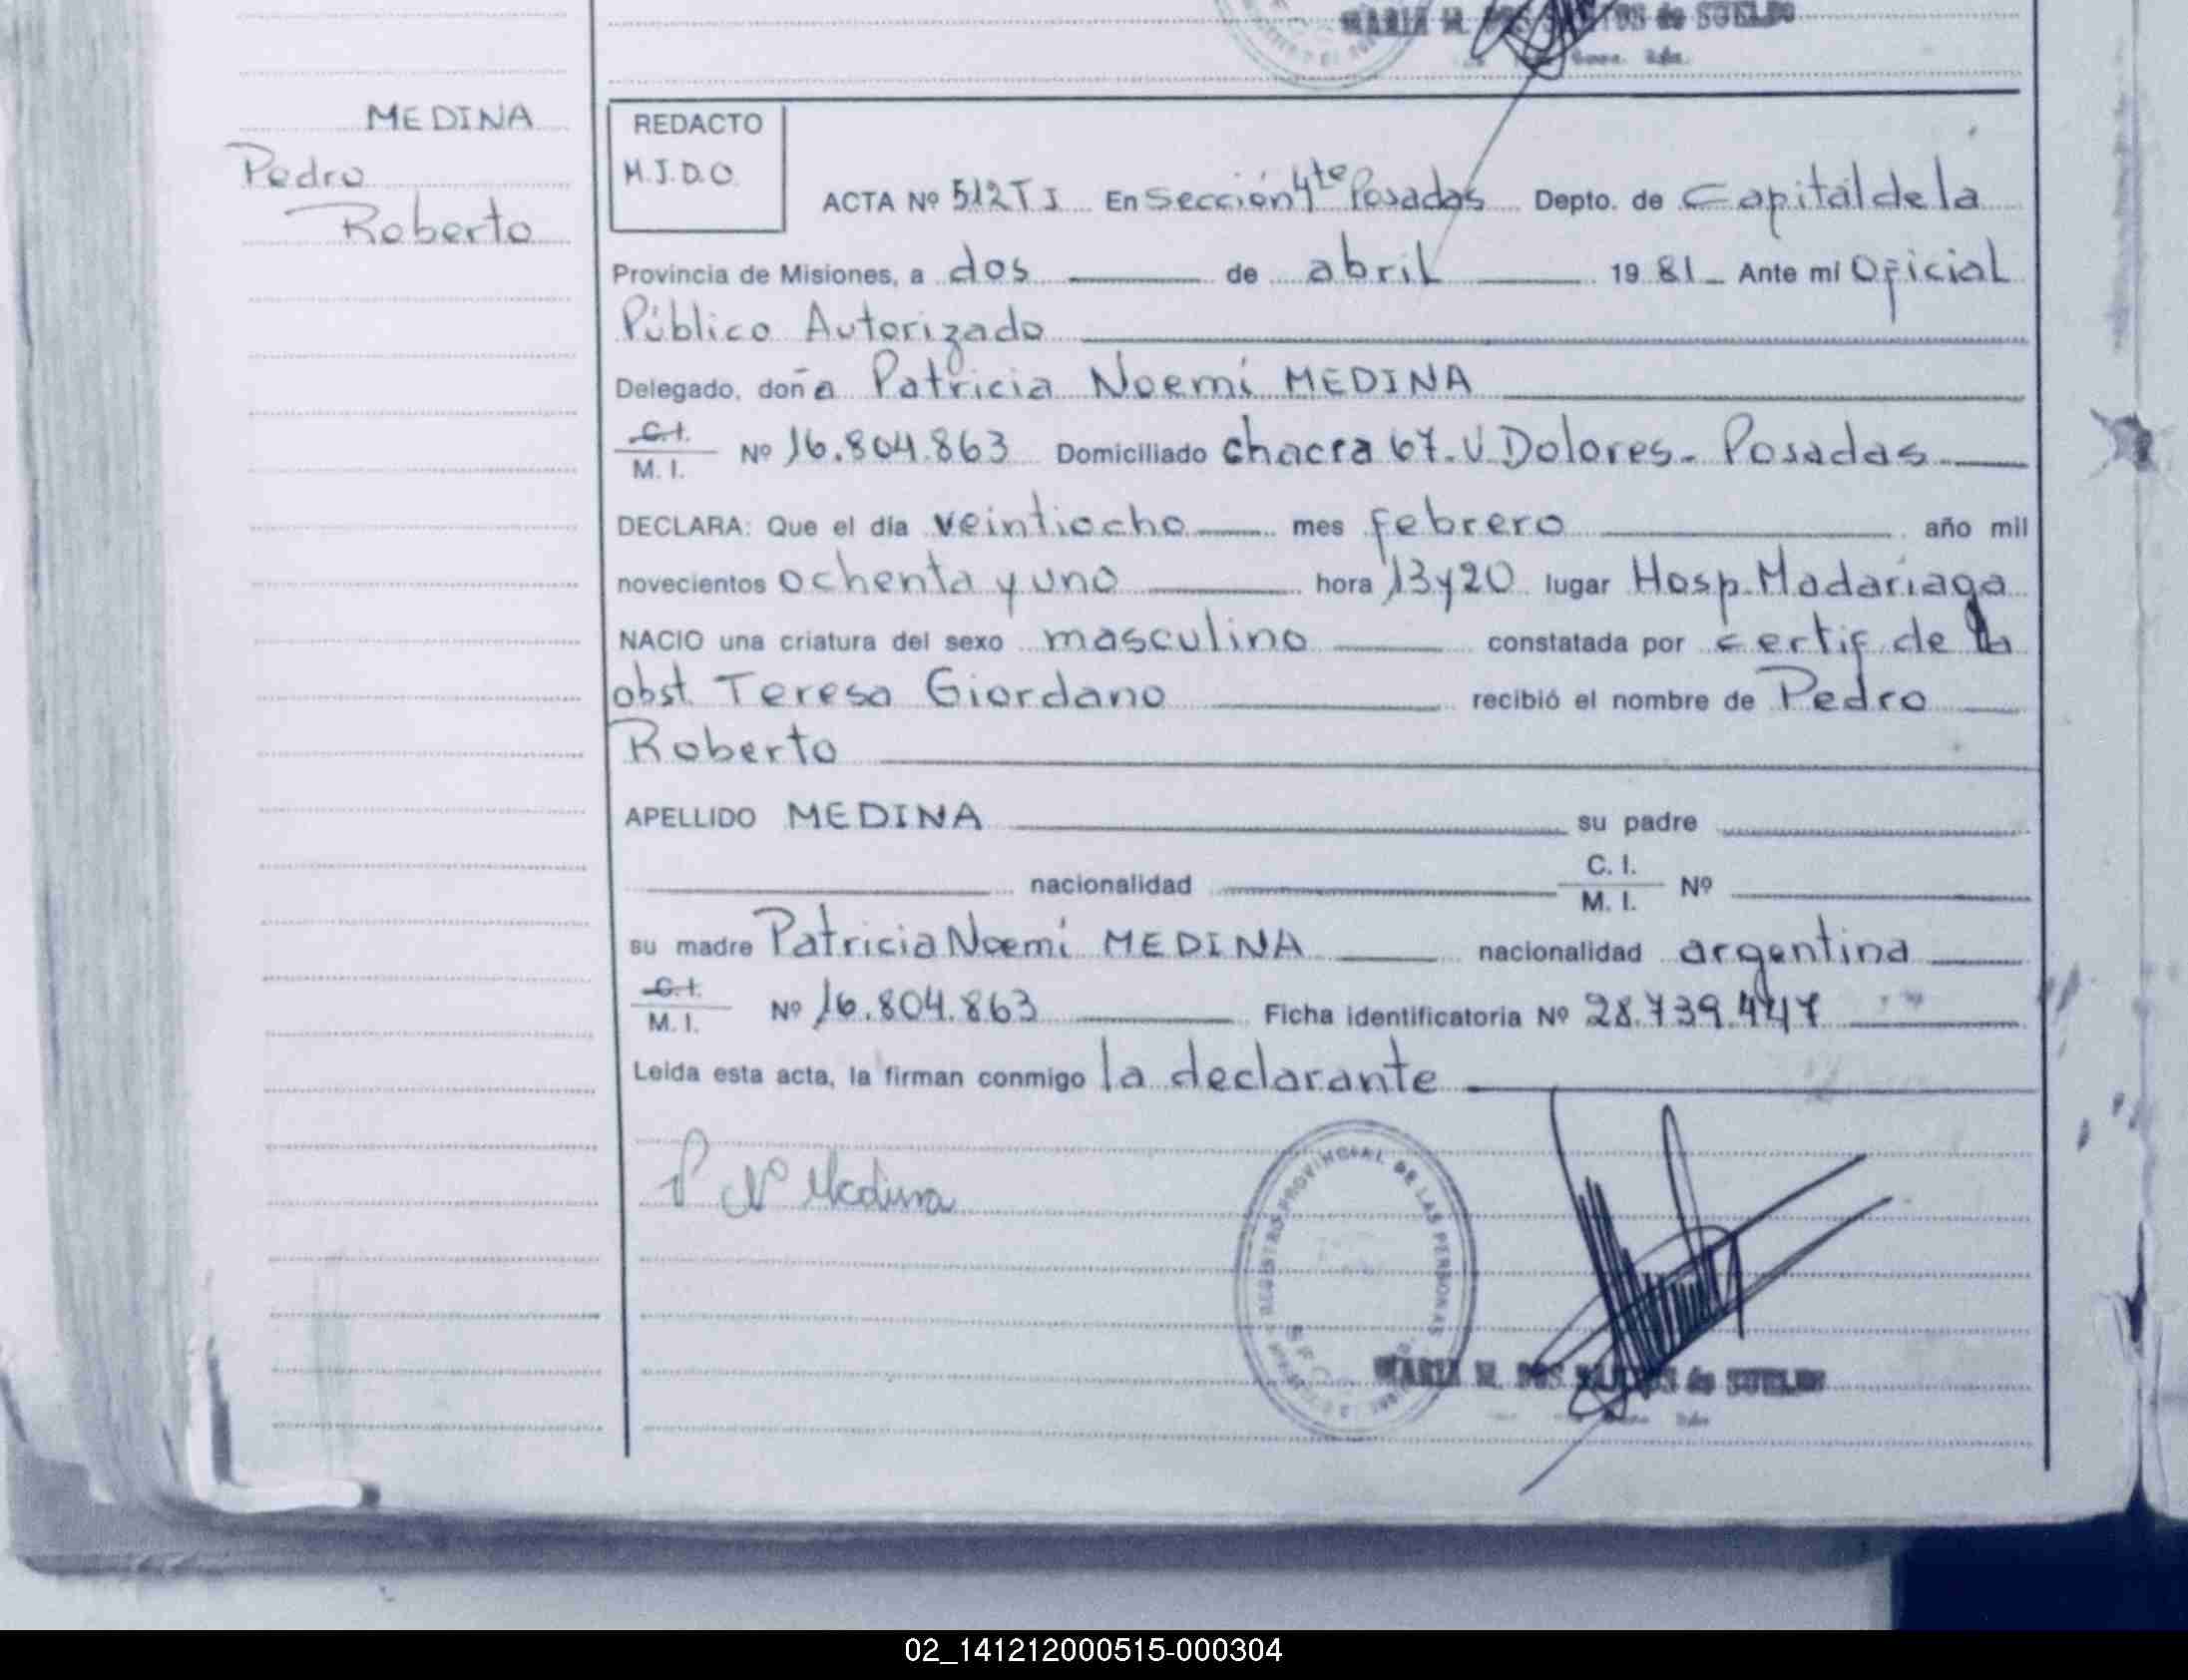 MARIA M. DOS SANTOS de SUELDO
MEDINA
Pedro
Roberto
REDACTO
M.J.D.O.
ACTA Nº 512 T I En Sección 4ta Posadas Depto. de Capital de la
Provincia de Misiones, a dos de abril 19 81 Ante mí Oficial
Público Autorizado
Delegado, doña Patricia Noemí MEDINA
C.I.
M. I. Nº 16.804.863 Domiciliado chacra 67. V. Dolores - Posadas
DECLARA: Que el día veintiocho mes febrero año mil
novecientos ochenta y uno hora 13 y 20 lugar Hosp. Madariaga
NACIO una criatura del sexo masculino constatada por certif. de la
obst. Teresa Giordano recibió el nombre de Pedro
Roberto
APELLIDO MEDINA su padre
nacionalidad C. I.
M. I. Nº
su madre Patricia Noemí MEDINA nacionalidad argentina
C.I.
M. I. Nº 16.804.863 Ficha identificatoria Nº 28.739.447
Leída esta acta, la firman conmigo la declarante
P No Medina
REGISTRO PROVINCIAL DE LAS PERSONAS
MARIA M. DOS SANTOS de SUELDO
02_141212000515-000304